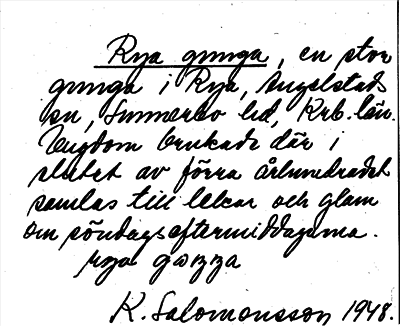 Rya gunga, en stor
gunga i Rya, Angelstads
sn, Sunnerbo hd, Krb. län.
Ungdom brukade där i
slutet av förra århundradet
samlas till lekar och glam
om söndagseftermiddagarna.
rya gozza
K. Salomonsson 1948.